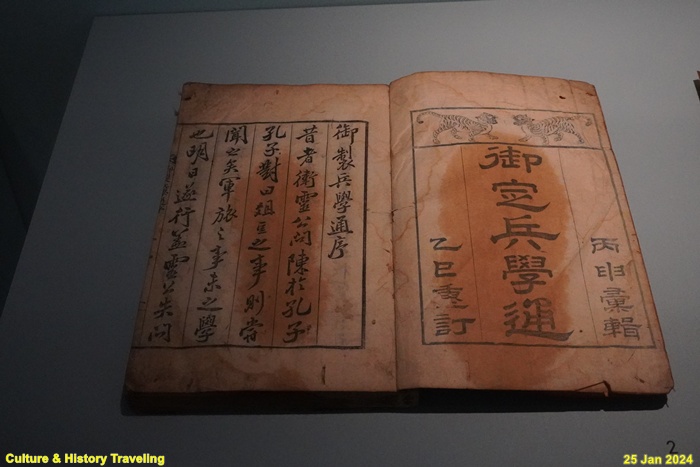 丙申彙輯
御定兵學通
乙巳重訂
御製兵學通序
昔者衛靈公問陳於孔子
孔子對曰俎豆之事則嘗
聞之矣軍旅之事未之學
也明日遂行盖靈公失問
2
Culture & History Traveling
25 Jan 2024